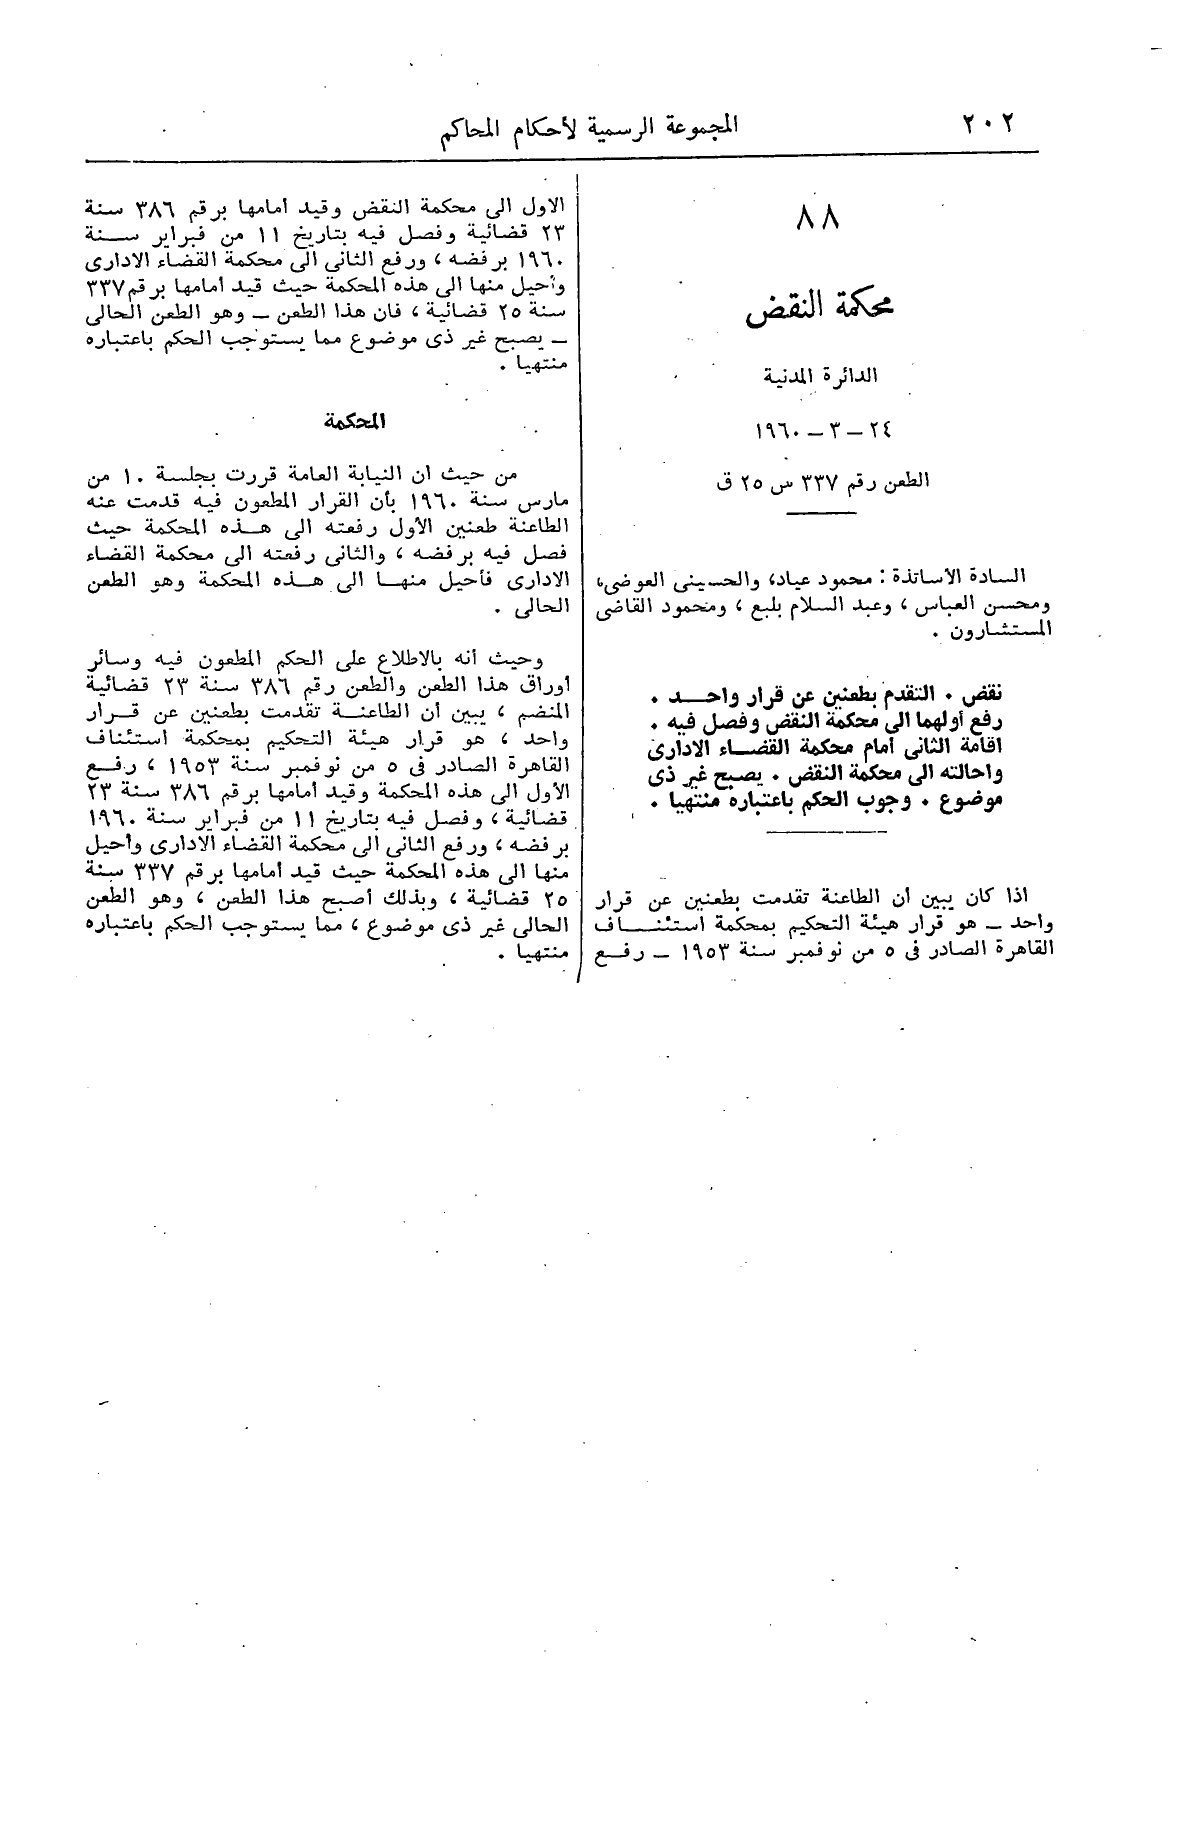 ٢٠٢
المجموعة الرسمية لأحكام المحاكم
٨٨
محكمة النقض
الدائرة المدنية
٢٤ – ٣ – ١٩٦٠
الطعن رقم ٣٣٧ س ٢٥ ق
السادة الاساتذة : محمود عياد، والحسينى العوضى،
ومحسن العباس ، وعبد السلام بلبع ، ومحمود القاضى
المستشارون .
نقض . التقدم بطعنين عن قرار واحد .
رفع أولهما الى محكمة النقض وفصل فيه .
اقامة الثانى أمام محكمة القضاء الادارى
واحالته الى محكمة النقض . يصبح غير ذى
موضوع . وجوب الحكم باعتباره منتهيا .
اذا كان يبين أن الطاعنة تقدمت بطعنين عن قرار
واحد – هو قرار هيئة التحكيم بمحكمة استئناف
القاهرة الصادر فى ٥ من نوفمبر سنة ١٩٥٣ – رفع
الاول الى محكمة النقض وقيد أمامها برقم ٣٨٦ سنة
٢٣ قضائية وفصل فيه بتاريخ ١١ من فبراير سنة
١٩٦٠ برفضه ، ورفع الثانى الى محكمة القضاء الادارى
وأحيل منها الى هذه المحكمة حيث قيد أمامها برقم ٣٣٧
سنة ٢٥ قضائية ، فان هذا الطعن – وهو الطعن الحالى
– يصبح غير ذى موضوع مما يستوجب الحكم باعتباره
منتهيا .
المحكمة
من حيث ان النيابة العامة قررت بجلسة ١٠ من
مارس سنة ١٩٦٠ بأن القرار المطعون فيه قدمت عنه
الطاعنة طعنين الأول رفعته الى هذه المحكمة حيث
فصل فيه برفضه ، والثانى رفعته الى محكمة القضاء
الادارى فأحيل منها الى هذه المحكمة وهو الطعن
الحالى .
وحيث أنه بالاطلاع على الحكم المطعون فيه وسائر
أوراق هذا الطعن والطعن رقم ٣٨٦ سنة ٢٣ قضائية
المنضم ، يبين أن الطاعنة تقدمت بطعنين عن قرار
واحد ، هو قرار هيئة التحكيم بمحكمة استئناف
القاهرة الصادر فى ٥ من نوفمبر سنة ١٩٥٣ ، رفع
الأول الى هذه المحكمة وقيد أمامها برقم ٣٨٦ سنة ٢٣
قضائية ، وفصل فيه بتاريخ ١١ من فبراير سنة ١٩٦٠
برفضه ، ورفع الثانى الى محكمة القضاء الادارى وأحيل
منها الى هذه المحكمة حيث قيد أمامها برقم ٣٣٧ سنة
٢٥ قضائية ، وبذلك أصبح هذا الطعن ، وهو الطعن
الحالى غير ذى موضوع ، مما يستوجب الحكم باعتباره
منتهيا .